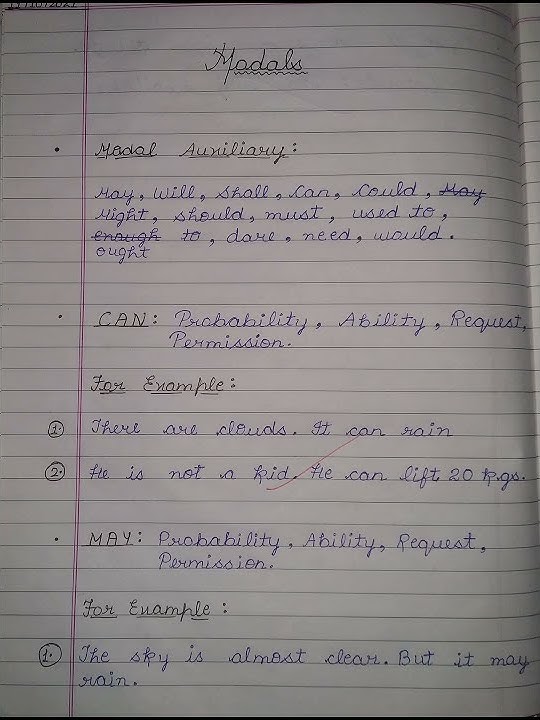 Modals
• Modal Auxiliary:
May, Will, Shall, Can, Could, May
Might, should, must, used to,
enough to, dare, need, would.
ought
• CAN: Probability, Ability, Request,
Permission.
For Example:
1. There are clouds. It can rain
2. He is not a kid. He can lift 20 k.gs.
• MAY: Probability, Ability, Request,
Permission.
For Example:
1. The sky is almost clear. But it may
rain.